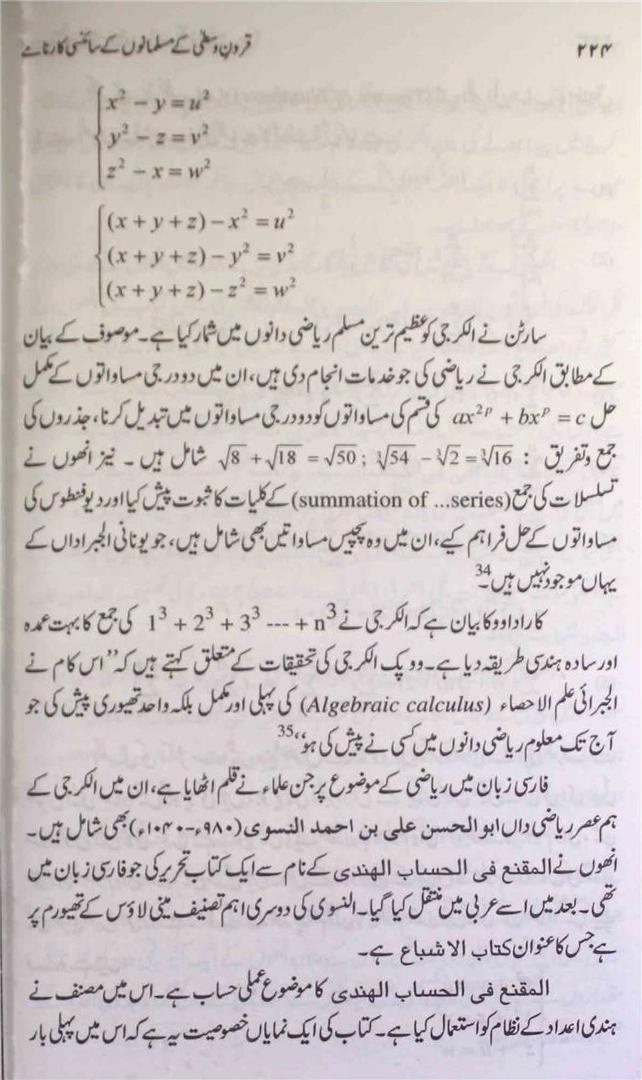 ۲۲۴ قرونِ وسطٰی کے مسلمانوں کے سائنسی کارنامے
x² − y = u²
y² − z = v²
z² − x = w²
(x + y + z) − x² = u²
(x + y + z) − y² = v²
(x + y + z) − z² = w²
سارٹن نے الکرجی کو عظیم ترین مسلم ریاضی دانوں میں شمار کیا ہے۔ موصوف کے بیان
کے مطابق الکرجی نے ریاضی کی جو خدمات انجام دی ہیں، ان میں دو درجی مساواتوں کے مکمل
حل ax²ᵖ + bxᵖ = c کی قسم کی مساواتوں کو دو درجی مساواتوں میں تبدیل کرنا، جذروں کی
جمع و تفریق : √8 + √18 = √50 ; ∛54 − ∛2 = ∛16 شامل ہیں ۔ نیز انھوں نے
تسلسلات کی جمع (summation of ...series) کے کلیات کا ثبوت پیش کیا اور دیوفنطوس کی
مساواتوں کے حل فراہم کیے، ان میں وہ پچیس مساواتیں بھی شامل ہیں، جو یونانی الجبرا داں کے
یہاں موجود نہیں ہیں۔34
کارا داوو کا بیان ہے کہ الکرجی نے 1³ + 2³ + 3³ --- + n³ کی جمع کا بہت عمدہ
اور سادہ ہندسی طریقہ دیا ہے۔ ووپک الکرجی کی تحقیقات کے متعلق کہتے ہیں کہ ”اس کام نے
الجبرائی علم الاحصاء (Algebraic calculus) کی پہلی اور مکمل بلکہ واحد تھیوری پیش کی جو
آج تک معلوم ریاضی دانوں میں کسی نے پیش کی ہو“،35
فارسی زبان میں ریاضی کے موضوع پر جن علماء نے قلم اٹھایا ہے، ان میں الکرجی کے
ہم عصر ریاضی داں ابو الحسن علی بن احمد النسوی (۹۸۰۔۱۰۴۰ء) بھی شامل ہیں۔
انھوں نے المقنع فی الحساب الھندی کے نام سے ایک کتاب تحریر کی جو فارسی زبان میں
تھی۔ بعد میں اسے عربی میں منتقل کیا گیا۔ النسوی کی دوسری اہم تصنیف مینی لاؤس کے تھیورم پر
ہے جس کا عنوان کتاب الاشباع ہے۔
المقنع فی الحساب الھندی کا موضوع عملی حساب ہے۔ اس میں مصنف نے
ہندی اعداد کے نظام کو استعمال کیا ہے۔ کتاب کی ایک نمایاں خصوصیت یہ ہے کہ اس میں پہلی بار